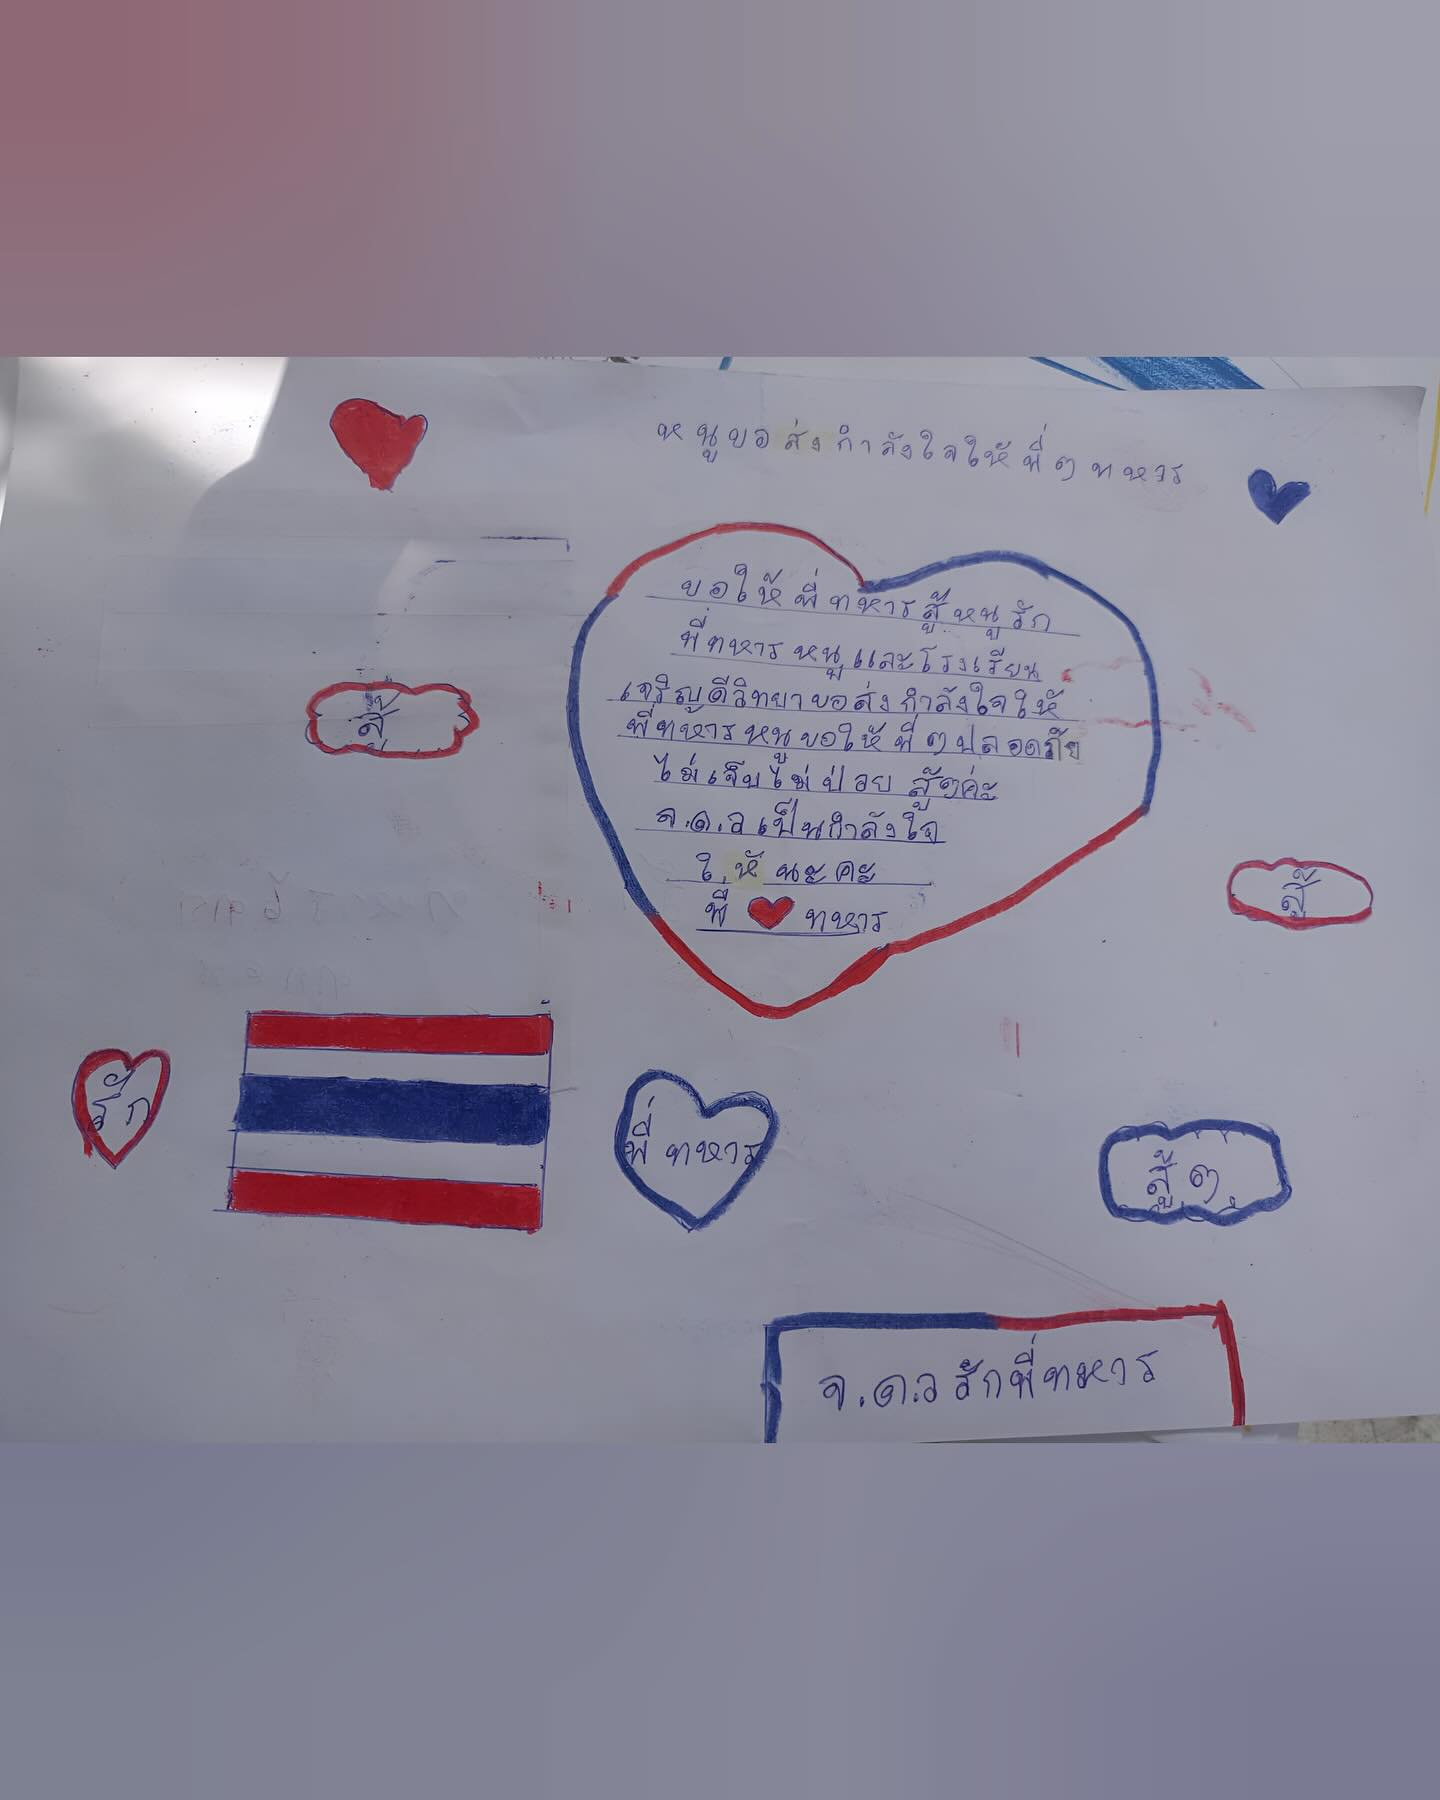 หนูขอส่งกำลังใจให้พี่ๆทหาร
ขอให้พี่ทหารสู้หนูรัก
พี่ทหารหนูและโรงเรียน
เจริญดีวิทยาขอส่งกำลังใจให้
พี่ทหารหนูขอให้พี่ๆปลอดภัย
ไม่เจ็บไม่ป่วย สู้ๆค่ะ
จ.ด.วเป็นกำลังใจ
ให้นะคะ
พี่ ทหาร
สู้
สู้
รัก
พี่ทหาร
สู้ๆ
จ.ด.วรักพี่ทหาร